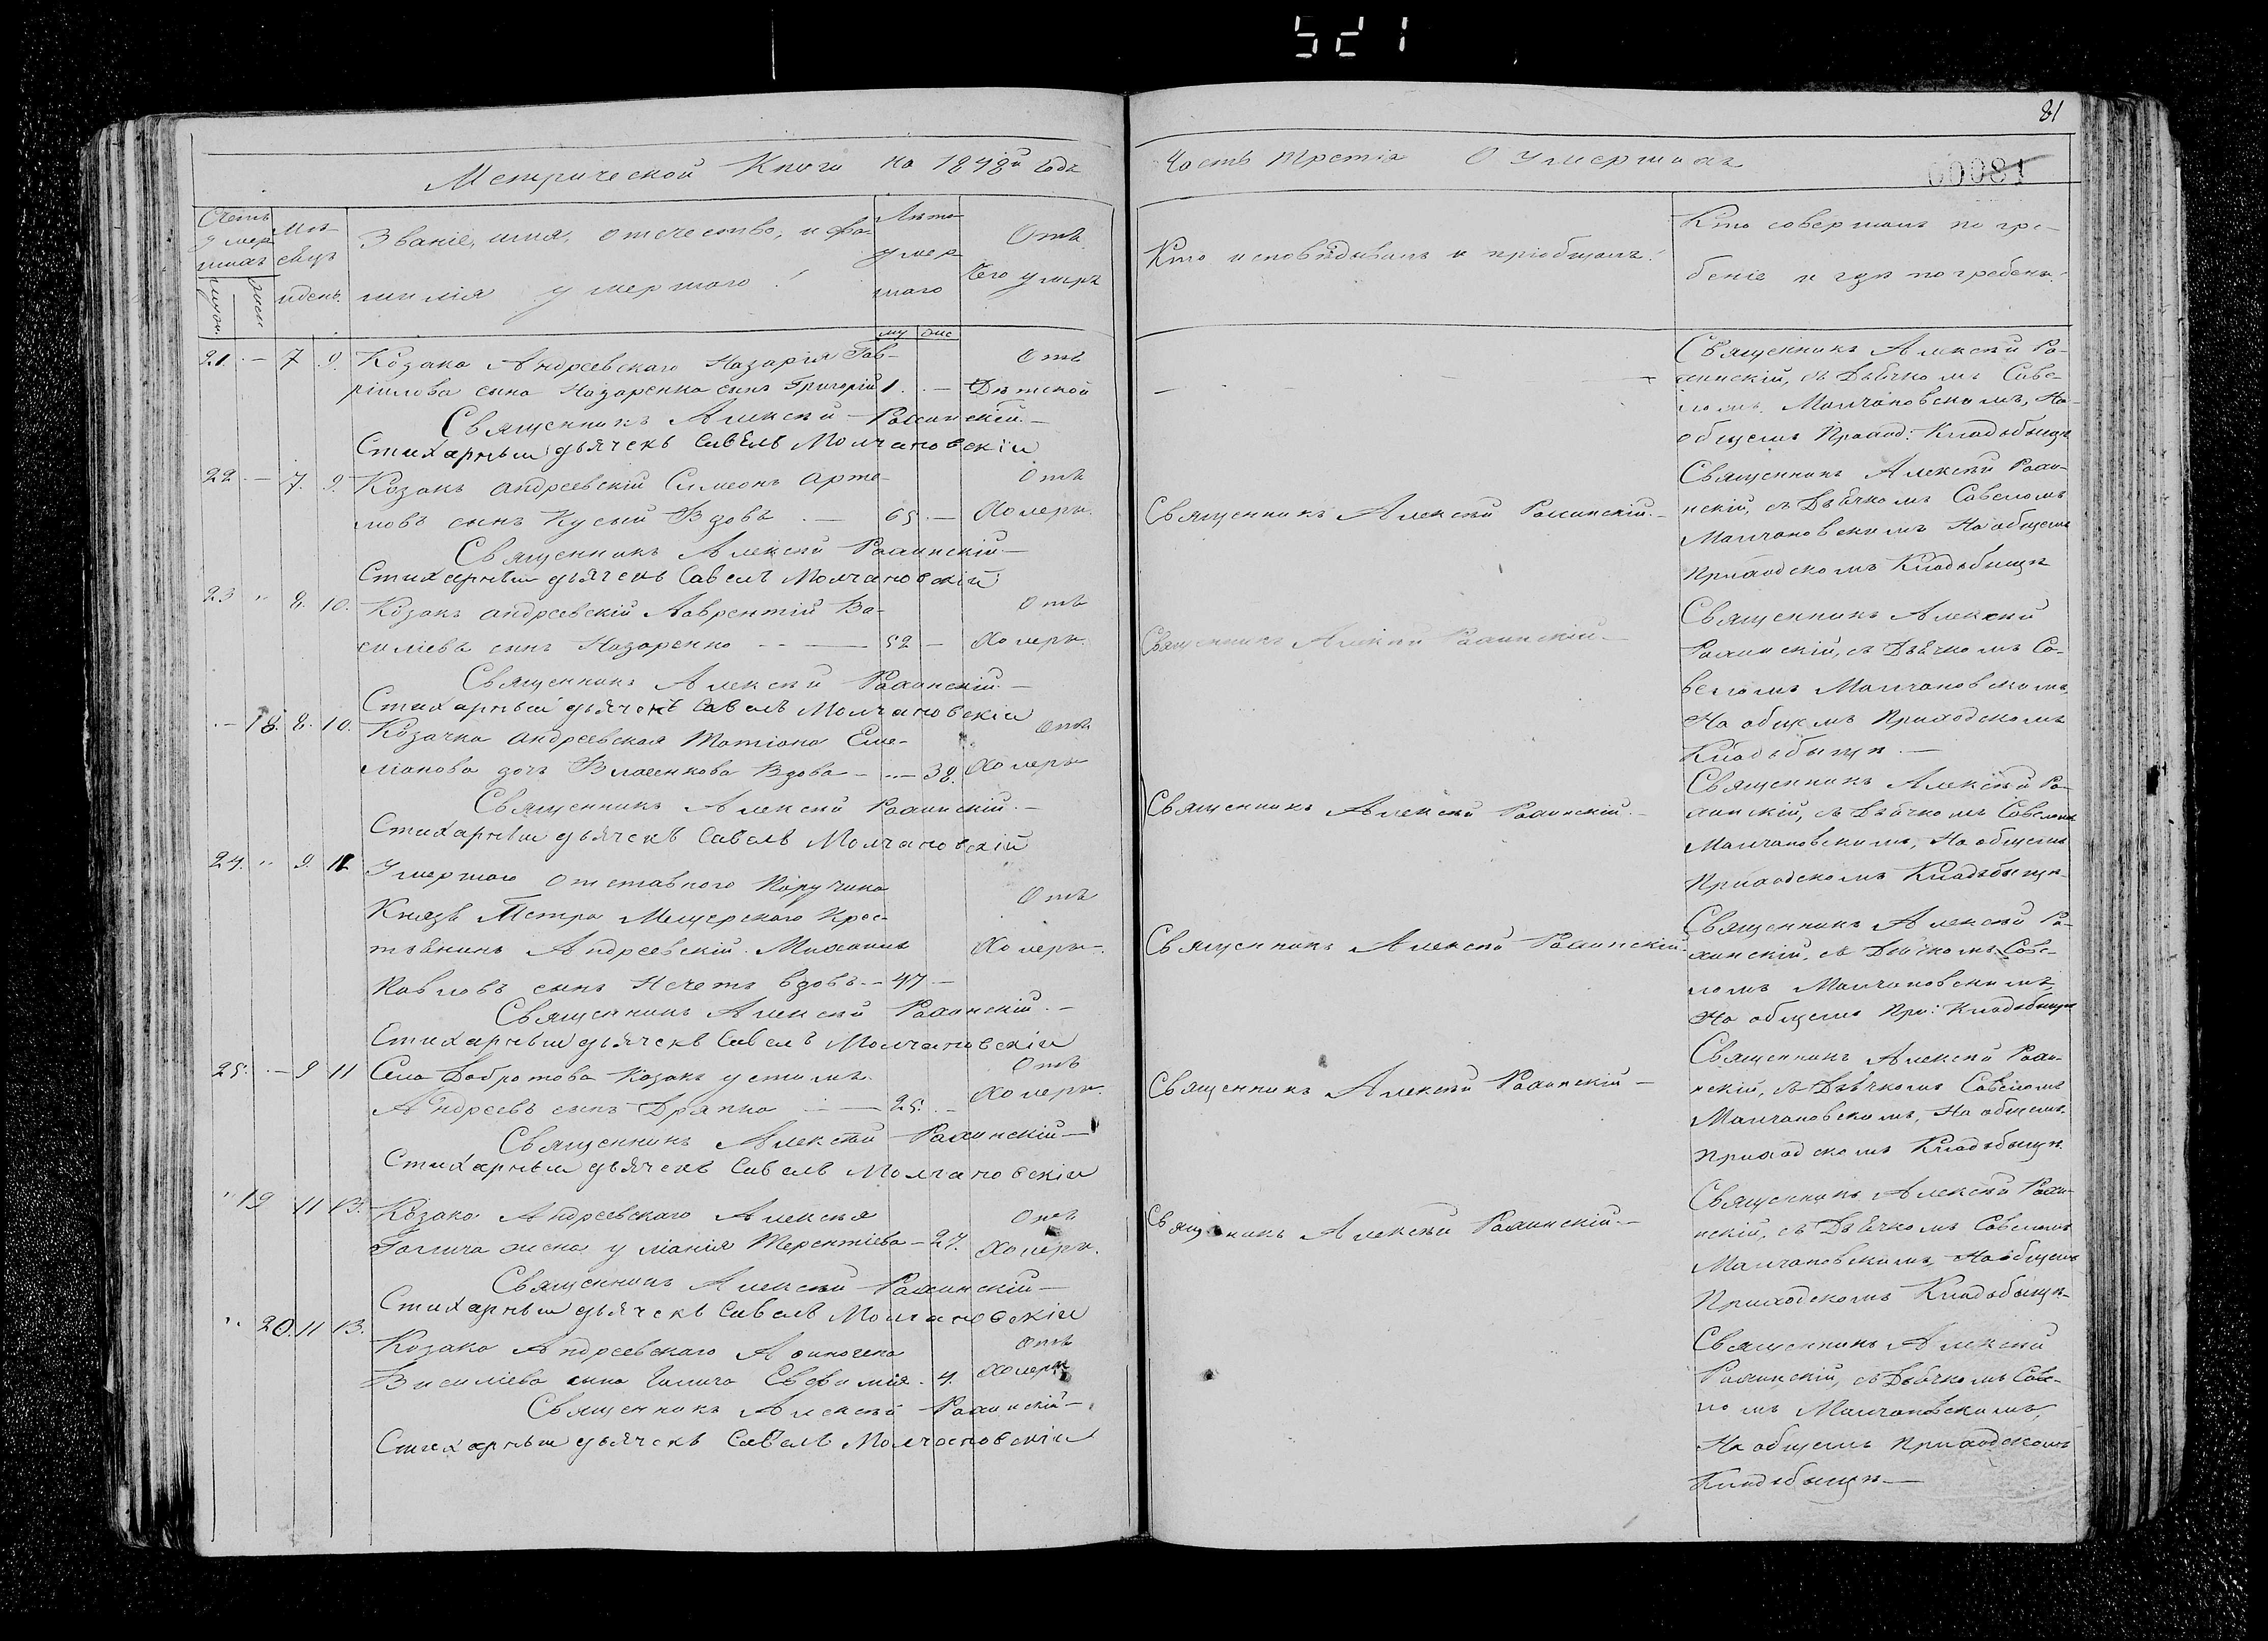 521
81
00081
Метрической Книги на 1848й годъ
Часть третія О умершихъ
Счетъ умершихъ
мужс.
женс.
Мѣсяцъ и день.
Званіе, имя, отечество, и фамилія умершаго
Лѣта умершаго
му
жис
Отъ Чего умеръ
Кто исповѣдывалъ и пріобщалъ.
Кто совершалъ погребеніе и гдѣ погребены.
21. — 7 9. Козака Андреевскаго Назарія Гав-
ріилова сына Назаренка сынъ Григорій 1. — Отъ Дѣтской
Священникъ Алексѣй
Стихарный дьячекъ Савелъ Молчановскій
Священникъ Алексѣй
съ Дьячкомъ Саве-
ломъ Молчановскимъ, На
общемъ Приход: Кладьбищѣ
22 — 7. 9. Козакъ Андреевскій Симеонъ Арте-
мовъ сынъ Кусый Вдовъ — 65 — Отъ Холеры.
Священникъ Алексѣй
Стихарный дьячекъ Савелъ Молчановскій
Священникъ Алексѣй
Священникъ Алексѣй
съ Дьячкомъ Савеломъ
Молчановскимъ На общемъ
Приходскомъ Кладьбищѣ
23 " 8. 10. Козакъ Андреевскій Лаврентій Ва-
силіевъ сынъ Назаренко — 52 — Отъ Холеры.
Священникъ Алексѣй
Стихарный дьячекъ Савелъ Молчановскій
Священникъ Алексѣй
Священникъ Алексѣй
съ Дьячкомъ Са-
веломъ Молчановскимъ,
На общемъ Приходскомъ
Кладьбищѣ —
— 18. 8. 10. Козачка Андреевская Матіона Еме-
ліанова дочь Вдова — 38. Отъ Холеры
Священникъ Алексѣй
Стихарный дьячекъ Савелъ Молчановскій
Священникъ Алексѣй
Священникъ Алексѣй
съ Дьячкомъ Савеломъ
Молчановскимъ, На общемъ
Приходскомъ Кладьбищѣ
24. " 9. Умершаго отставного Поручика
Князя Петра Мещерскаго Крес-
тьянинъ Андреевскій Михаилъ
Павловъ сынъ Нечетъ вдовъ — 47 — Отъ Холеры.
Священникъ Алексѣй
Стихарный дьячекъ Савелъ Молчановскій
Священникъ Алексѣй
Священникъ Алексѣй
съ Дьячкомъ Саве-
ломъ Молчановскимъ,
На общемъ При: Кладьбищѣ
25. — 9 11 Села Добротова Козакъ Устимъ
Андреевъ сынъ Драпко — 25. — Отъ Холеры.
Священникъ Алексѣй
Стихарный дьячекъ Савелъ Молчановскій
Священникъ Алексѣй
Священникъ Алексѣй
съ Дьячкомъ Савеломъ
Молчановскимъ, На общемъ
Приходскомъ Кладьбищѣ.
" 19 11 13. Козака Андреевскаго Алексѣя
жена Уліанія Терентіева — 27. Отъ Холеры.
Священникъ Алексѣй
Стихарный дьячекъ Савелъ Молчановскій
Священникъ Алексѣй
Священникъ Алексѣй
съ Дьячкомъ Савеломъ
Молчановскимъ, На общемъ
Приходскомъ Кладьбищѣ
" 20. 11 13. Козака Андреевскаго
Василіева сына 4. Отъ Холеры
Священникъ Алексѣй
Стихарный дьячекъ Савелъ Молчановскій
Священникъ Алексѣй
съ Дьячкомъ Саве-
ломъ Молчановскимъ,
На общемъ Приходскомъ
Кладьбищѣ —